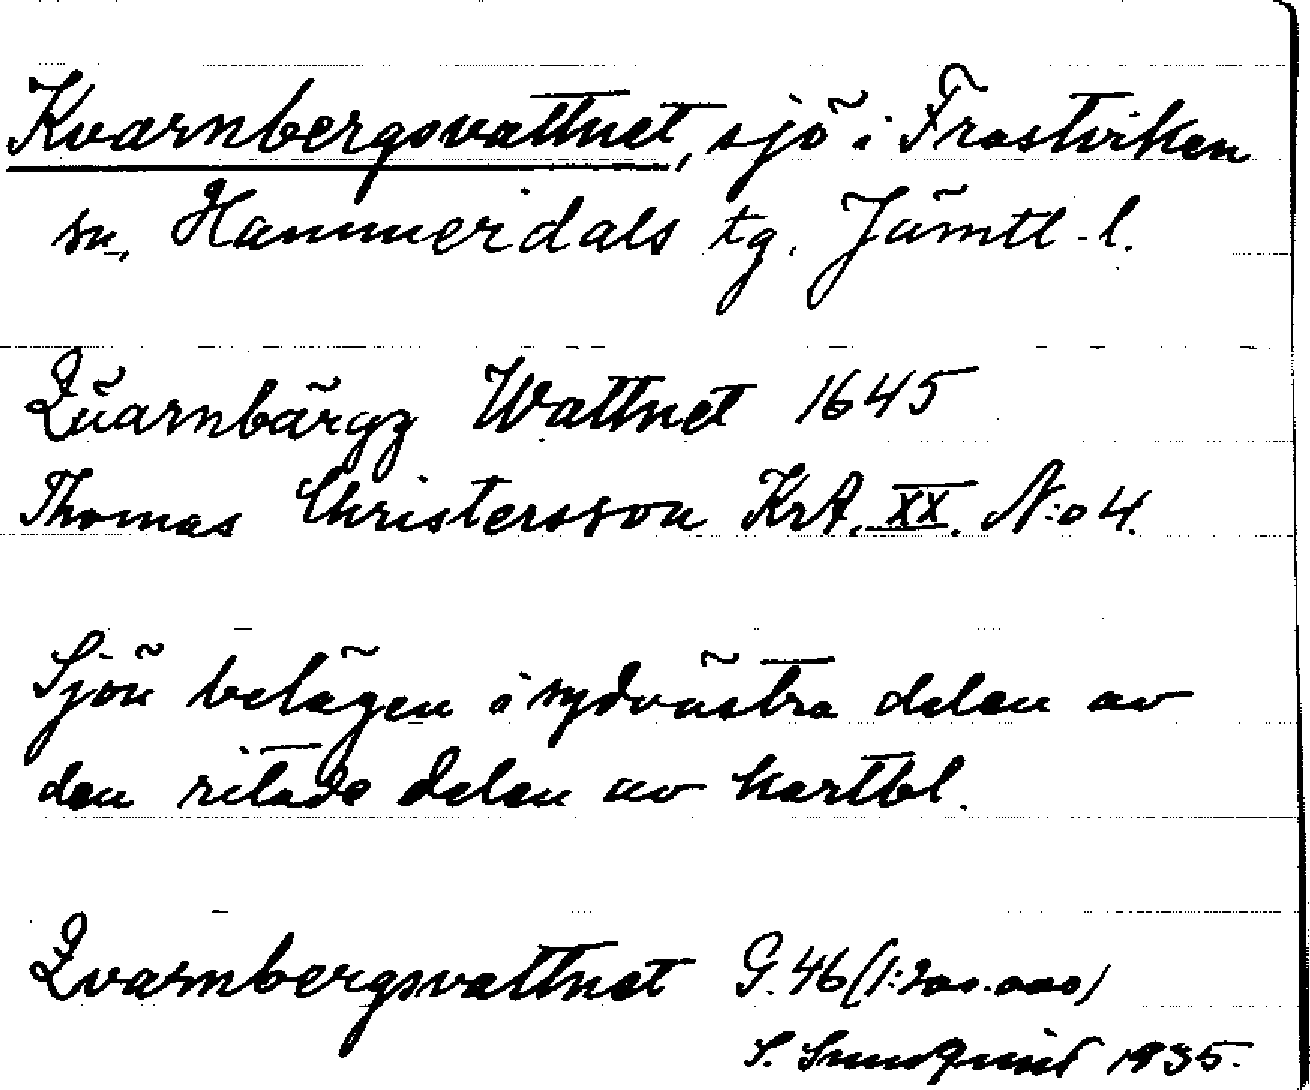 Kvarnbergsvattnet, sjö i Frostviken
sn, Hammerdals tg. Jämtl. l.
Qüarnbärgz Wattnet 1645
Thomas Christersson KrA. XX. N:o 4.
Sjön belägen i sydvästra delen av
den ritade delen av kartbl.
Qvarnbergsvattnet G. 46 (1:200.000)
S. Sundqvist 1935.